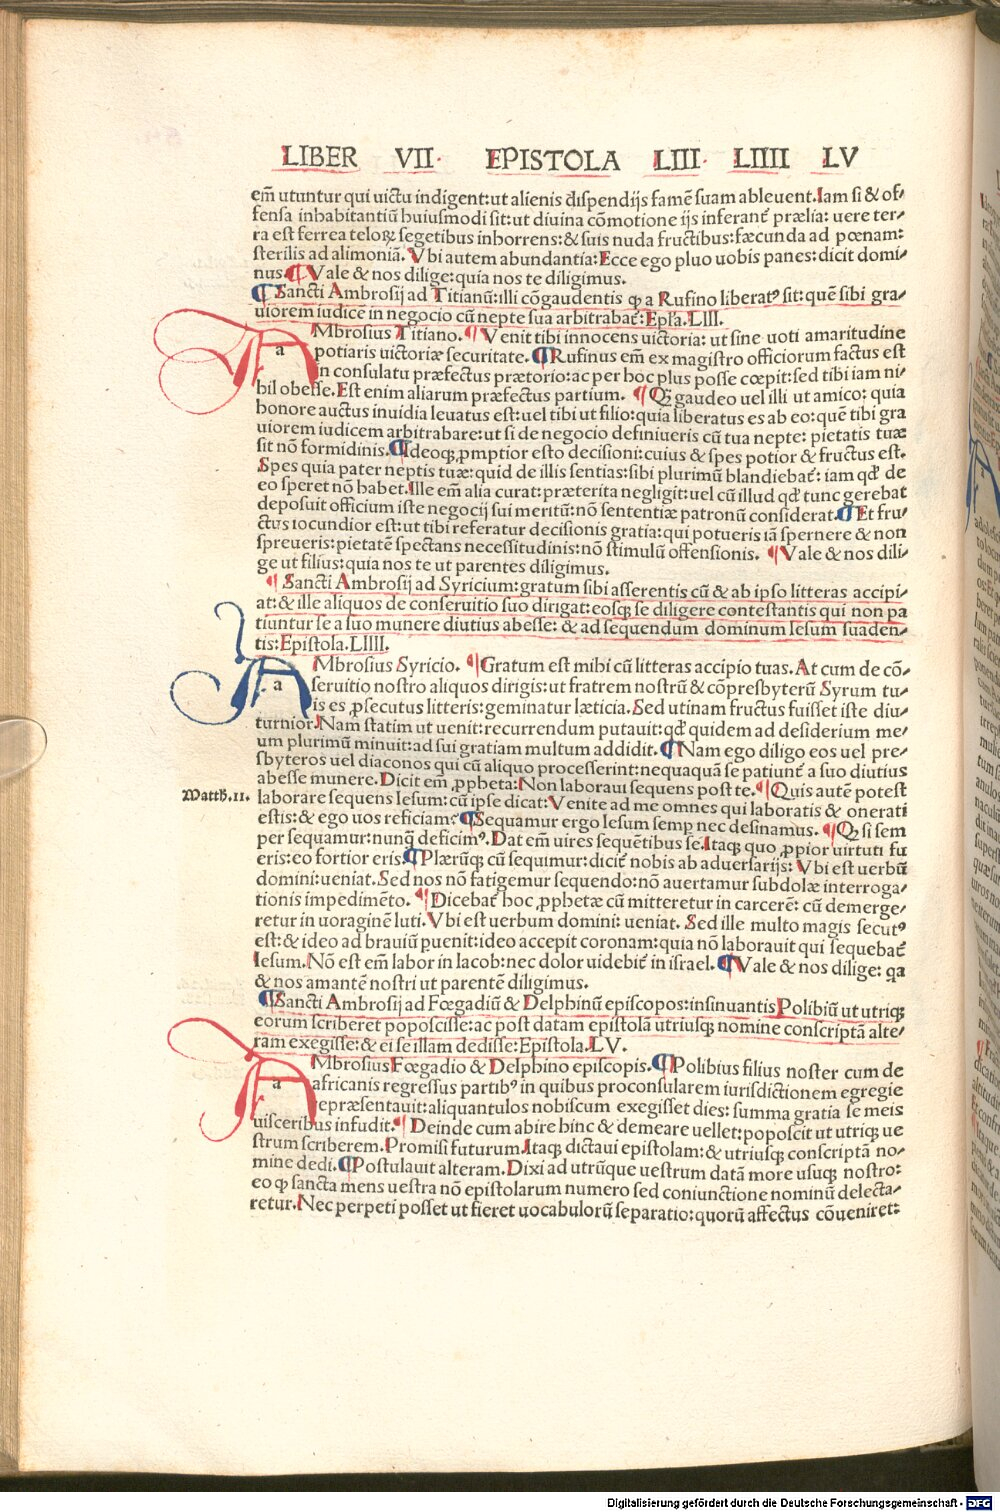 LIBER VII· EPISTOLA LIII· LIIII LV
em̄ utuntur qui uictu indigent:ut alienis dispendijs famē suam ableuent.Iam si & of⸗
fensa inhabitantiū huiusmodi sit:ut diuina cōmotione ijs inferant᷑ prælia: uere ter⸗
ra est ferrea teloꝝ segetibus inhorrens:& suis nuda fructibus:fæcunda ad pœnam:
sterilis ad alimoniā. Vbi autem abundantia:Ecce ego pluo uobis panes:dicit domi⸗
nus.¶ Vale & nos dilige:quia nos te diligimus.
¶ Sancti Ambrosij ad Titianū:illi cōgaudentis ꝙ a Rufino liberatꝰ sit:quē sibi gra⸗
uiorem iudicē in negocio cū nepte sua arbitrabat᷑:Epl̄a.LIII.
a Mbrosius Titiano.¶ Venit tibi innocens uictoria: ut sine uoti amaritudine
potiaris uictoriæ securitate.¶ Rufinus em̄ ex magistro officiorum factus est
in consulatu præfectus prætorio:ac per hoc plus posse cœpit:sed tibi iam ni⸗
hil obesse.Est enim aliarum præfectus partium. ¶ Qꝫ gaudeo uel illi ut amico: quia
honore auctus inuidia leuatus est:uel tibi ut filio:quia liberatus es ab eo:quē tibi gra
uiorem iudicem arbitrabare:ut si de negocio definiueris cū tua nepte: pietatis tuæ
sit nō formidinis.¶ Ideoqꝫ ꝓmptior esto decisioni:cuius & spes potior & fructus est.
Spes quia pater neptis tuæ:quid de illis sentias:sibi plurimū blandiebat᷑: iam qđ de
eo speret nō habet.Ille em̄ alia curat:præterita negligit:uel cū illud qđ tunc gerebat
deposuit officium iste negocij sui meritū:nō sententiæ patronū considerat.¶ Et fru⸗
ctus iocundior est:ut tibi referatur decisionis gratia:qui potueris iā spernere & non
spreueris:pietatē spectans necessitudinis:nō stimulū offensionis. ¶ Vale & nos dili⸗
ge ut filius:quia nos te ut parentes diligimus.
¶ Sancti Ambrosij ad Syricium:gratum sibi asserentis cū & ab ipso litteras accipi⸗
at:& ille aliquos de conseruitio suo dirigat:eosqꝫ se diligere contestantis qui non pa
tiuntur se a suo munere diutius abesse: & ad sequendum dominum Iesum suaden⸗
tis:Epistola.LIIII.
a Mbrosius Syricio. ¶ Gratum est mihi cū litteras accipio tuas. At cum de cō⸗
seruitio nostro aliquos dirigis:ut fratrem nostrū & cōpresbyterū Syrum tu⸗
is es ꝓsecutus litteris:geminatur læticia. Sed utinam fructus fuisset iste diu⸗
turnior.Nam statim ut uenit:recurrendum putauit:qđ quidem ad desiderium me⸗
um plurimū minuit:ad sui gratiam multum addidit. ¶ Nam ego diligo eos uel pre⸗
sbyteros uel diaconos qui cū aliquo processerint:nequaquā se patiunt᷑ a suo diutius
abesse munere.Dicit em̄ ꝓpheta:Non laboraui sequens post te.¶ Quis autē potest
Matth.11.
laborare sequens Iesum:cū ipse dicat:Venite ad me omnes qui laboratis & onerati
estis:& ego uos reficiam?¶ Sequamur ergo Iesum semꝑ nec desinamus. ¶ Qꝫ si sem
per sequamur:nunq̄ deficimꝰ.Dat em̄ uires sequētibus se.Itaqꝫ quo ꝓpior uirtuti fu
eris:eo fortior eris.¶ Plærūqꝫ cū sequimur:dicit᷑ nobis ab aduersarijs: Vbi est uerbū
domini:ueniat.Sed nos nō fatigemur sequendo:nō auertamur subdolæ interroga⸗
tionis impedimēto. ¶ Dicebat᷑ hoc ꝓphetæ cū mitteretur in carcerē: cū demerge⸗
retur in uoraginē luti.Vbi est uerbum domini: ueniat. Sed ille multo magis secutꝰ
est:& ideo ad brauiū ꝑuenit:ideo accepit coronam:quia nō laborauit qui sequebat᷑
Iesum. Nō est em̄ labor in Iacob:nec dolor uidebit᷑ in israel.¶ Vale & nos dilige: qa
& nos amantē nostri ut parentē diligimus.
¶ Sancti Ambrosij ad Fœgadiū & Delphinū episcopos:insinuantis Polibiū ut utriqꝫ
eorum scriberet poposcisse:ac post datam epistolā utriusqꝫ nomine conscriptā alte⸗
ram exegisse:& ei se illam dedisse:Epistola.LV.
a Mbrosius Fœgadio & Delphino episcopis.¶ Polibius filius noster cum de
africanis regressus partibꝰ in quibus proconsularem iurisdictionem egregie
repræsentauit:aliquantulos nobiscum exegisset dies: summa gratia se meis
uisceribus infudit.¶ Deinde cum abire hinc & demeare uellet:poposcit ut utriqꝫ ue
strum scriberem.Promisi futurum.Itaqꝫ dictaui epistolam:& utriusqꝫ conscriptā no⸗
mine dedi.¶ Postulauit alteram.Dixi ad utrūque uestrum datā more usuqꝫ nostro:
eo ꝙ sancta mens uestra nō epistolarum numero sed coniunctione nominū delecta⸗
retur.Nec perpeti posset ut fieret uocabulorū separatio:quorū affectus cōueniret:
Digitalisierung gefördert durch die Deutsche Forschungsgemeinschaft - DFG